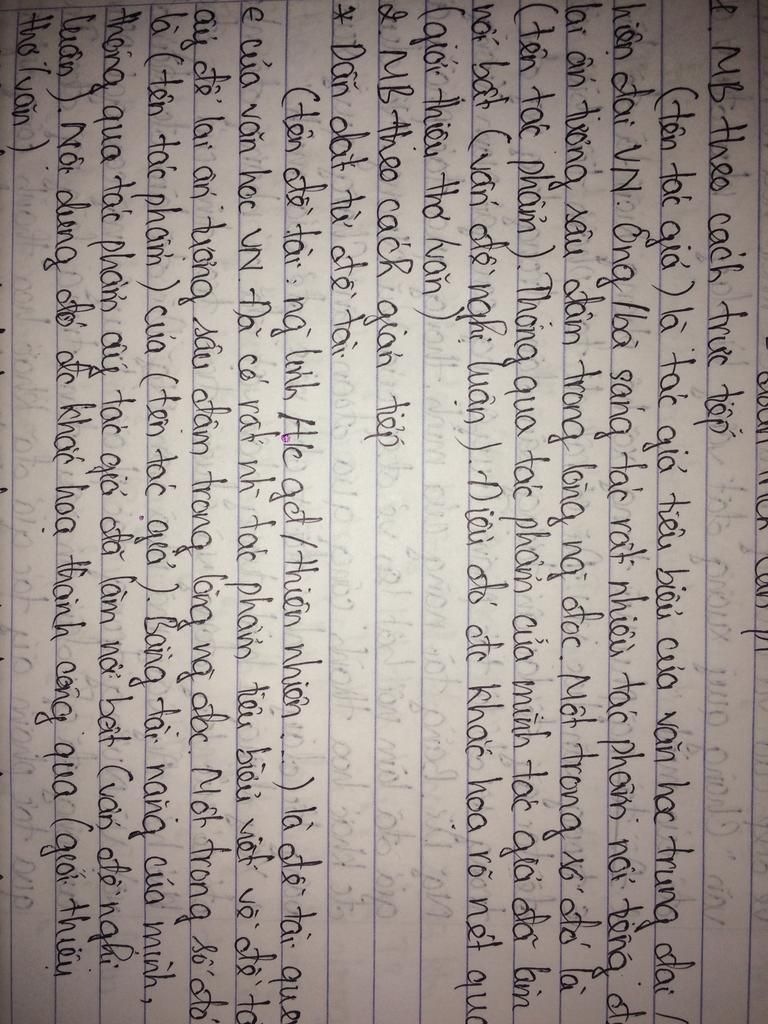 1. MB theo cách trực tiếp
(tên tác giả) là tác giả tiêu biểu của văn học trung đại /
hiện đại VN. Ông/bà sáng tác rất nhiều tác phẩm nổi tiếng để
lại ấn tượng sâu đậm trong lòng ng đọc. Một trong số đó là
(tên tác phẩm). Thông qua tác phẩm của mình tác giả đã làm
nổi bật (vấn đề nghị luận). Điều đó đc khắc hoạ rõ nét qua
(giới thiệu thơ/văn)
2. MB theo cách gián tiếp
* Dẫn dắt từ đề tài
(tên đề tài: ng lính /t/c gđ/thiên nhiên...) là đề tài que
của văn học VN. Đã có rất nh tác phẩm tiêu biểu viết về đề tà
ấy để lại ấn tượng sâu đậm trong lòng ng đọc. Một trong số đó
là (tên tác phẩm) của (tên tác giả). Bằng tài năng của mình,
thông qua tác phẩm ấy tác giả đã làm nổi bật (vấn đề nghị
luận). Nội dung đó đc khắc hoạ thành công qua (giới thiệu
thơ/văn)